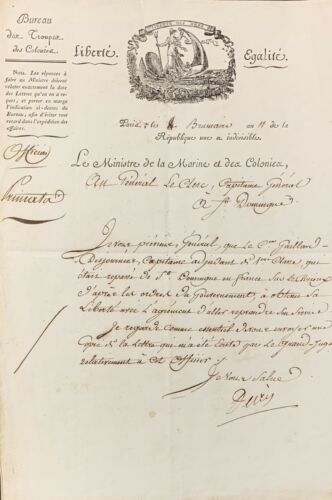 Bureau
des Troupes
des Colonies.
Liberté,
Egalité.
NOTA. Les réponses à
faire au Ministre doivent
relater exactement la date
des Lettres qu'on en a re-
çues, et porter en marge
l'indication ci-dessus du
Bureau, afin d'éviter tout
retard dans l'expédition des
affaires.
Paris, le Brumaire an 11 de la
République une & indivisible.
Officier
Primata
Le Ministre de la Marine et des Colonies,
Au Général Le Clerc, Capitaine Général
à St. Domingue.
Je vous préviens, Général, que le Cen. Gaillard
Desjourneux, Capitaine adjudant de 1ere Classe, qui
était repassé de St. Domingue en france sur le
D'après les ordres du Gouvernement, a obtenu sa
Liberté avec l'agrément d'aller reprendre son Service
Je regarde comme inutile de vous envoyer une
Copie de la Lettre qui m'a été Ecrite par le Grand-Juge
relativement à cet officier.
Je vous Salue